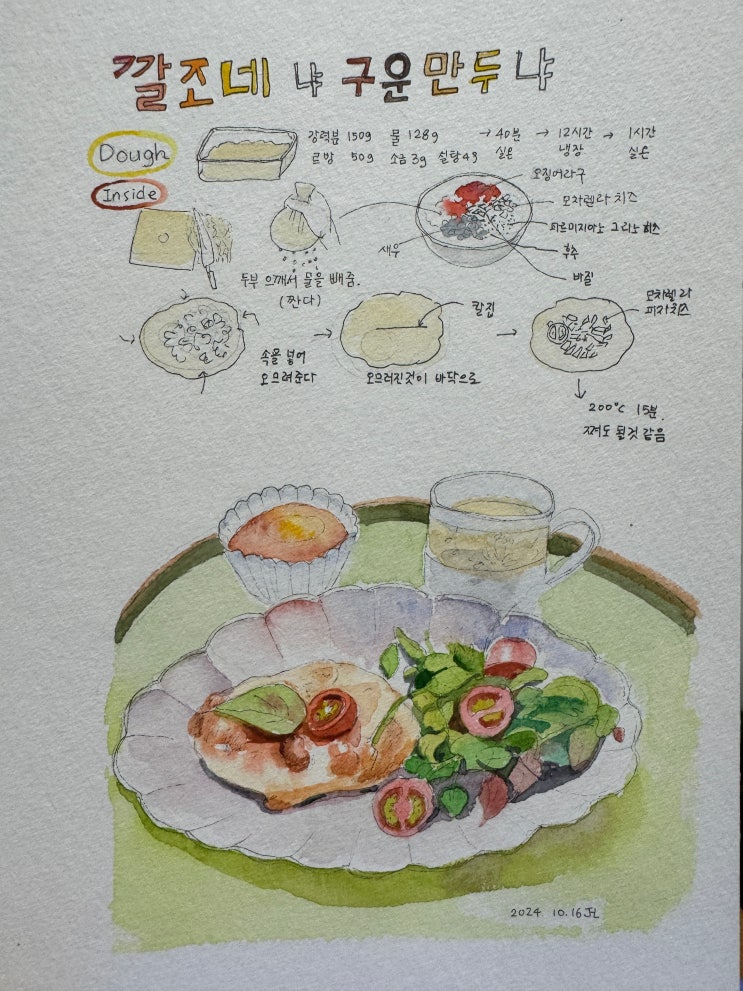 깔조네 냐 구운만두냐
Dough
강력분 150g 물 128g → 40분 → 12시간 → 1시간
르방 50g 소금 3g 설탕 4g 실온 냉장 실온
Inside
오징어라구
모차렐라 치즈
파르미지아노 그라노 치즈
새우
후추
바질
두부 으깨서 물을 빼줌.
(짠다)
칼집
모차렐라
피자치즈
속을 넣어
오므려준다
오므러진것이 바닥으로
200°C 15분.
쪄도 될것 같음
2024 10.16 JL